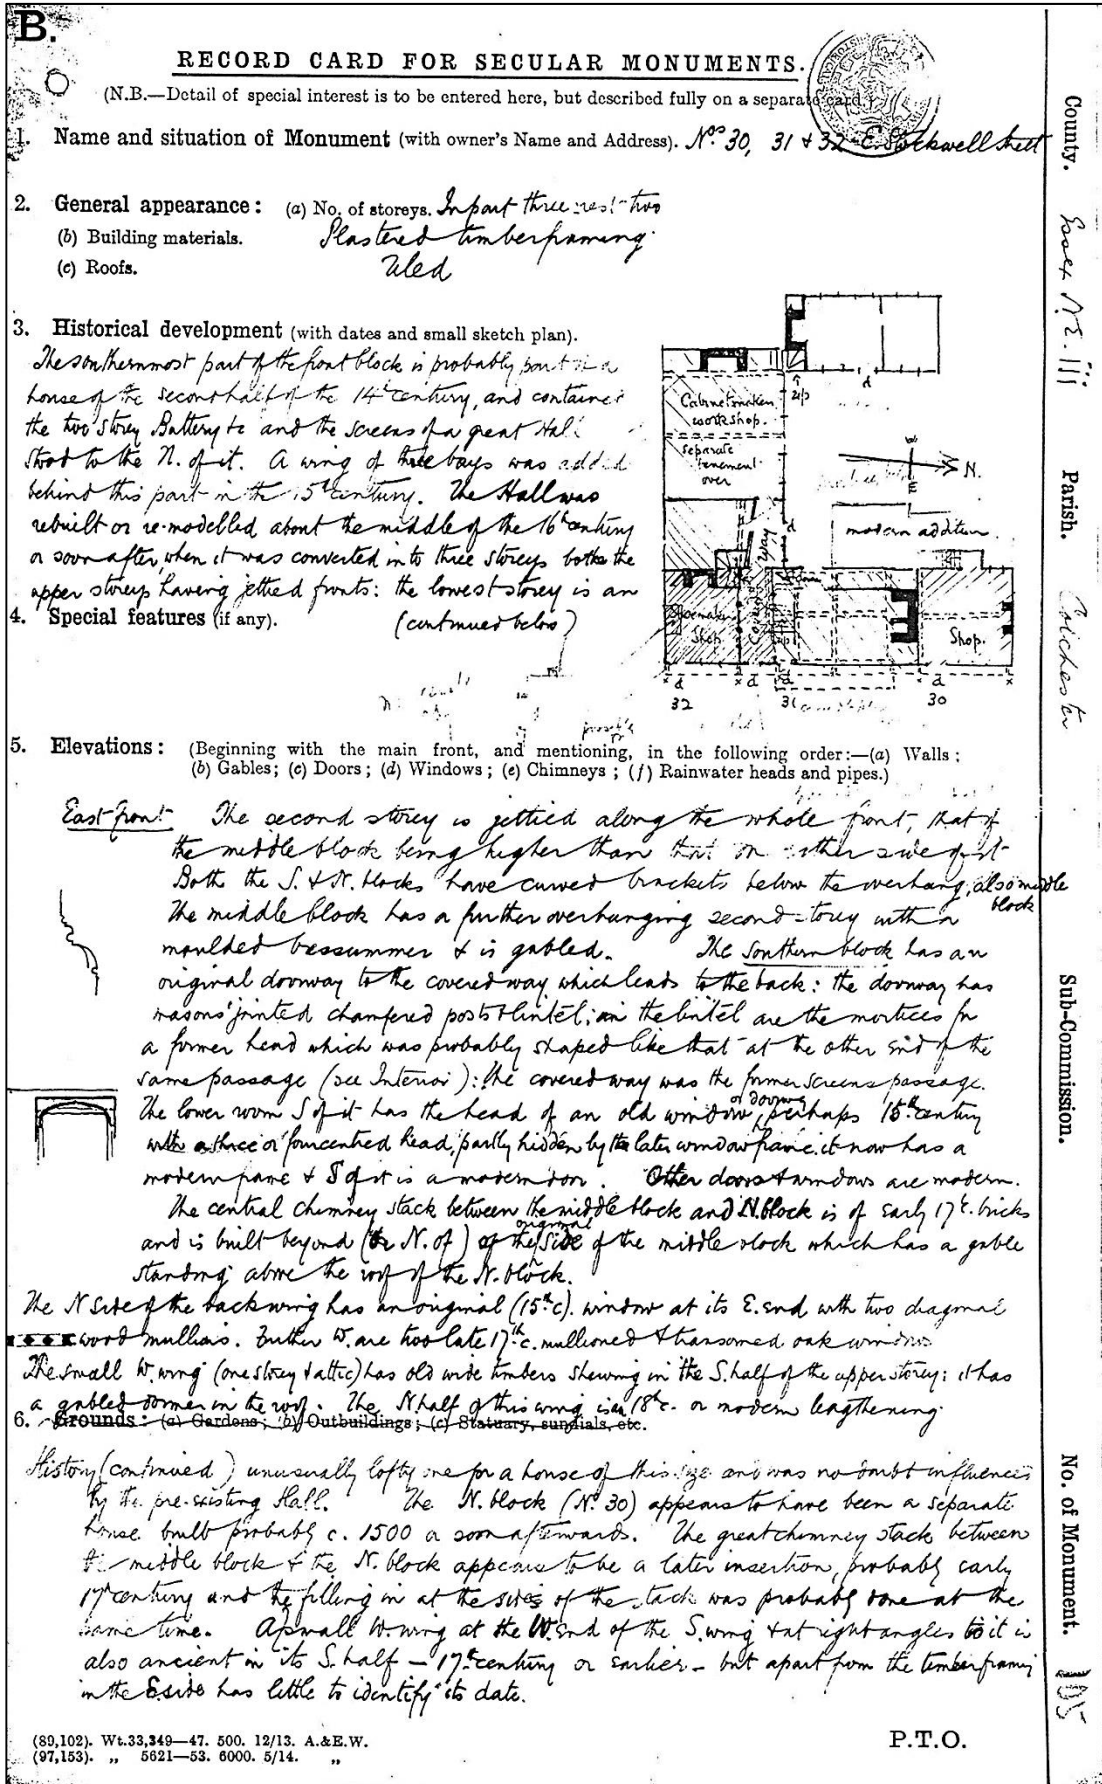 B.
RECORD CARD FOR SECULAR MONUMENTS.
(N.B.—Detail of special interest is to be entered here, but described fully on a separate card.)
1. Name and situation of Monument (with owner's Name and Address). Nos 30, 31 & 32 E. Stockwell Street
2. General appearance: (a) No. of storeys. In part three rest two
(b) Building materials. Plastered timberframing.
(c) Roofs. Tiled
3. Historical development (with dates and small sketch plan).
The southernmost part of the front block is probably part of a
house of the second half of the 14th century, and contained
the two storey Buttery &c and the screens of a great Hall
stood to the N. of it. A wing of three bays was added
behind this part in the 15th century. The Hall was
rebuilt or re-modelled about the middle of the 16th century
or soon after, when it was converted into three storeys both the
upper storeys having jettied fronts: the lowest storey is an
4. Special features (if any). (continued below)
Cabinetmaker
workshop.
separate
tenement
over
up
N.
E
modern addition
way
Shop
Shop.
d
32
31
30
5. Elevations: (Beginning with the main front, and mentioning, in the following order:—(a) Walls;
(b) Gables; (c) Doors; (d) Windows; (e) Chimneys; (f) Rainwater heads and pipes.)
East front The second storey is jettied along the whole front, that of
the middle block being higher than that on either side of it
Both the S. & N. blocks have curved brackets below the overhang, also middle block
The middle block has a further overhanging second storey with a
moulded bessummer & is gabled. The Southern block has an
original doorway to the covered way which leads to the back: the doorway has
masons' jointed chamfered posts & lintel; in the lintel are the mortices for
a former head which was probably shaped like that at the other end of the
same passage (see Interior): the covered way was the former screens passage.
The lower room S of it has the head of an old window or doorway, perhaps 15th century
with a three or fourcentred head, partly hidden by the later window frame. it now has a
modern frame & S of it is a modern door. Other doors & windows are modern.
The central chimney stack between the middle block and N. block is of early 17th c. bricks
and is built beyond (the N. of) of the original side of the middle block which has a gable
standing above the roof of the N. block.
The N side of the back wing has an original (15th c). window at its E. end with two diagonal
wood mullions. Further W. are two late 17th c. mullioned & transomed oak windows
The small W. wing (one storey & attic) has old wide timbers shewing in the S. half of the upper storey: it has
a gabled dormer in the roof. The N half of this wing is an 18th c. or modern lengthening.
6. Grounds: (a) Gardens; (b) Outbuildings; (c) Statuary, sundials, etc.
History (continued) unusually lofty one for a house of this size and was no doubt influenced
by the pre-existing Hall. The N. block (No. 30) appears to have been a separate
house built probably c. 1500 or soon afterwards. The great chimney stack between
the middle block & the N. block appears to be a later insertion, probably early
17th century and the filling in at the sides of the stack was probably done at the
same time. A small W. wing at the W. end of the S. wing & at right angles to it is
also ancient in its S. half — 17th century or earlier — but apart from the timberframing
in the E side has little to identify its date.
(89,102). Wt.33,349—47. 500. 12/13. A.&E.W.
(97,153). „ 5621—53. 6000. 5/14. „
P.T.O.
County. Essex N.E. iii
Parish. Colchester
Sub-Commission.
No. of Monument.